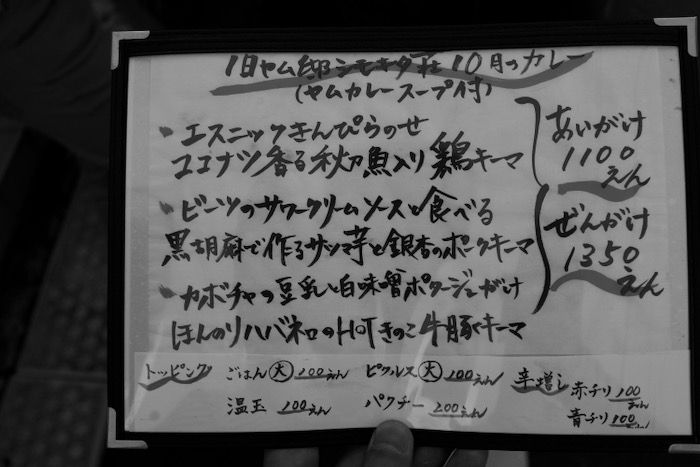 旧ヤム邸シモキタ荘10月のカレー
(ヤムカレースープ付)
・エスニックきんぴらのせ
ココナツ香る秋刀魚入り鶏キーマ
・ビーツのサワークリームソースと食べる
黒胡麻で作るサツマ芋と銀杏のポークキーマ
・カボチャの豆乳と白味噌ポタージュがけ
ほんのりハバネロのHOTきのこ牛豚キーマ
あいがけ
1100
えん
ぜんがけ
1350
えん
トッピング ごはん大 100えん ピクルス大 100えん
温玉 100えん パクチー 200えん
辛増し 赤チリ 100えん
青チリ 100えん